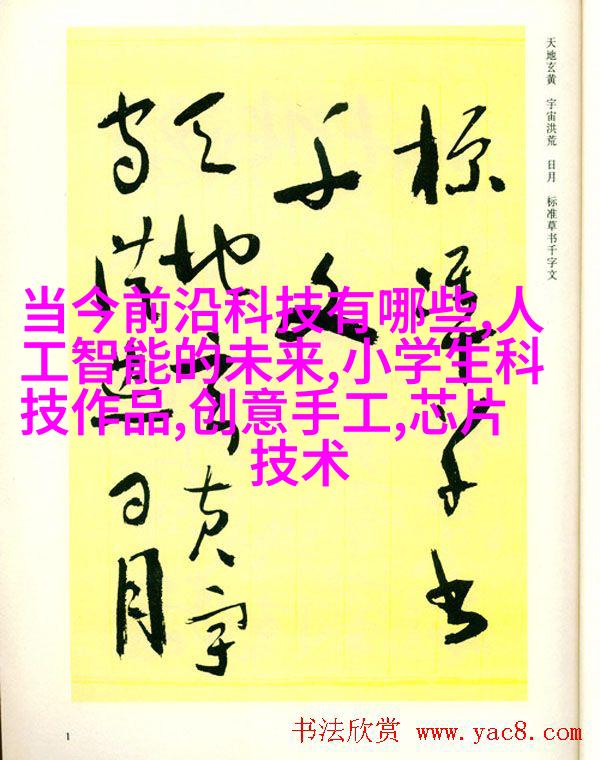 天地玄黄 宇宙洪荒 日月 标准草书千字文
标准草书
千文
天地玄黄宇
宙洪荒日月
当今前沿科技有哪些,人
工智能的未来,小学生科
技作品,创意手工,芯片
技术
1
书法欣赏 www.yac8.com